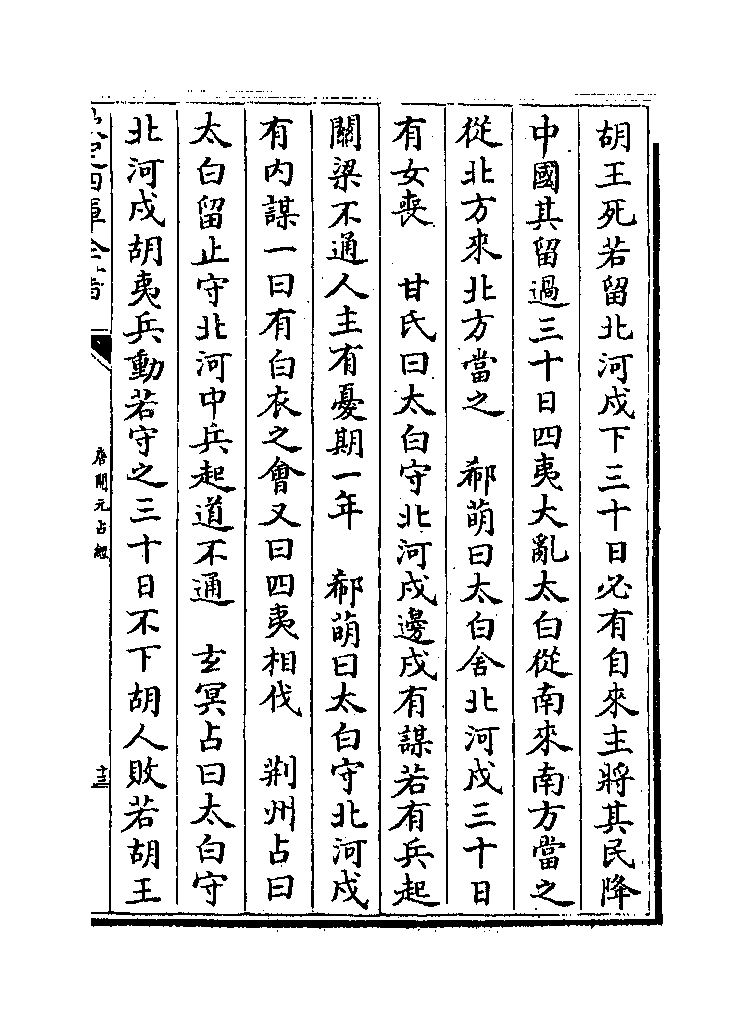 胡王死若留北河戍下三十日必有自來主將其民降
中國其留過三十日四夷大亂太白從南來南方當之
從北方來北方當之　郗萌曰太白舍北河戍三十日
有女喪　甘氏曰太白守北河戍邊戍有謀若有兵起
關梁不通人主有憂期一年　郗萌曰太白守北河戍
有内謀一曰有白衣之㑹又曰四夷相伐　荆州占曰
太白留止守北河中兵起道不通　玄冥占曰太白守
北河戍胡夷兵動若守之三十日不下胡人敗若胡王
欽定四庫全書
唐開元占經
十三